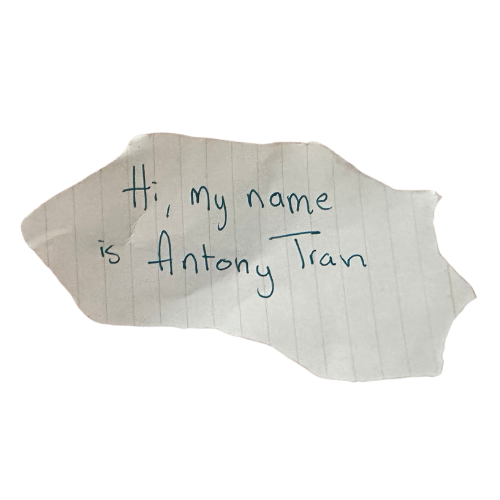 Hi, my name
is Antony Tran